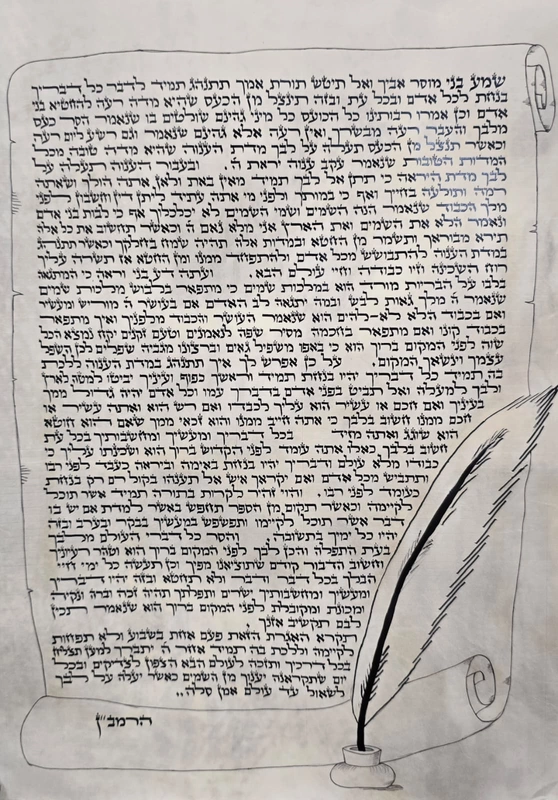 שמע בני מוסר אביך ואל תיטש תורת אמך תתנהג תמיד לדבר כל דבריך
בנחת לכל אדם ובכל עת ובזה תינצל מן הכעס שהיא מדה רעה להחטיא בני
אדם וכן אמרו רבותינו כל הכועס כל מיני גהינם שולטים בו שנאמר הסר כעס
מלבך והעבר רעה מבשרך ואין רעה אלא גהינם שנאמר וגם רשע ליום רעה
וכאשר תנצל מן הכעס תעלה על לבך מדת הענוה שהיא מדה טובה מכל
המדיות הטובות שנאמר עקב ענוה יראת ה׳. ובעבור הענוה תעלה על
לבך מדת היראה כי תיתן אל לבך תמיד מאין באת ולאן אתה הולך ושאתה
רמה ותולעה בחייך ואף כי במותך ולפני מי אתה עתיד ליתן דין וחשבון לפני
מלך הכבוד שנאמר הנה השמים ושמי השמים לא יכלכלוך אף כי לבות בני אדם
ונאמר הלא את השמים ואת הארץ אני מלא נאם ה׳ וכאשר תחשוב את כל אלה
תירא מבוראך ותשמר מן החטא ובמדות אלה תהיה שמח בחלקך וכאשר תתנהג
במדת הענוה להתבושש מכל אדם ולהתפחד ממנו ומן החטא אז תשרה עליך
רוח השכינה וזיו כבודה וחיי עולם הבא. ועתה דע בני וראה כי המתגאה
בלבו על הבריות מורד הוא במלכות שמים כי מתפאר בלבוש מלכות שמים
שנאמר ה׳ מלך גאות לבש ובמה יתגאה לב האדם אם בעושר ה׳ מוריש ומעשיר
ואם בכבוד הלא לא-להים הוא שנאמר העושר והכבוד מלפניך ואיך מתפאר
בכבוד קונו ואם מתפאר בחכמה מסיר שפה לנאמנים וטעם זקנים יקח נמצא הכל
שוה לפני המקום ברוך הוא כי באפו משפיל גאים וברצונו מגביה שפלים לכן השפל
עצמך וינשאך המקום. על כן אפרש לך איך תתנהג במדת הענוה ללכת
בה תמיד כל דבריך יהיו בנחת תמיד וראשך כפוף ועיניך יביטו למטה לארץ
ולבך למעלה ואל תביט בפני אדם בדברך עמו וכל אדם יהיה גדול ממך
בעיניך ואם חכם או עשיר הוא עליך לכבדו ואם רש הוא ואתה עשיר או
חכם ממנו חשוב בלבך כי אתה חייב ממנו והוא זכאי ממך שאם הוא חוטא
הוא שוגג ואתה מזיד בכל דבריך ומעשיך ומחשבותיך בכל עת
חשוב בלבך כאלו אתה עומד לפני הקדוש ברוך הוא ושכינתו עליך כי
כבודו מלא עולם ודבריך יהיו בנחת באימה וביראה כעבד לפני רבו
ותתבייש מכל אדם ואם יקראך איש אל תענהו בקול רם רק בנחת
כעומד לפני רבו. והוי זהיר לקרות בתורה תמיד אשר תוכל
לקיימה וכאשר תקום מן הספר תחפש באשר למדת אם יש בו
דבר אשר תוכל לקיימו ותפשפש במעשיך בבקר ובערב ובזה
יהיו כל ימיך בתשובה. והסר כל דברי העולם מלבך
בעת התפלה והכן לבך לפני המקום ברוך הוא וטהר רעיוניך
וחשוב הדבור קודם שתוציאנו מפיך וכן תעשה כל ימי חייך
הבלך בכל דבר ודבר ולא תחטא ובזה יהיו דבריך
ומעשיך ומחשבותיך ישרים ותפלתך תהיה זכה וברה ונקיה
ומכונת ומקובלת לפני המקום ברוך הוא שנאמר תכין
לבם תקשיב אזנך.
תקרא האגרת הזאת פעם אחת בשבוע ולא תפחות
לקיימה וללכת בה תמיד אחר ה׳ יתברך למען תצליח
בכל דרכיך ותזכה לעולם הבא הצפון לצדיקים ובכל
יום שתקראנה יענוך מן השמים כאשר יעלה על לבך
לשאול עד עולם אמן סלה..
הרמב״ן